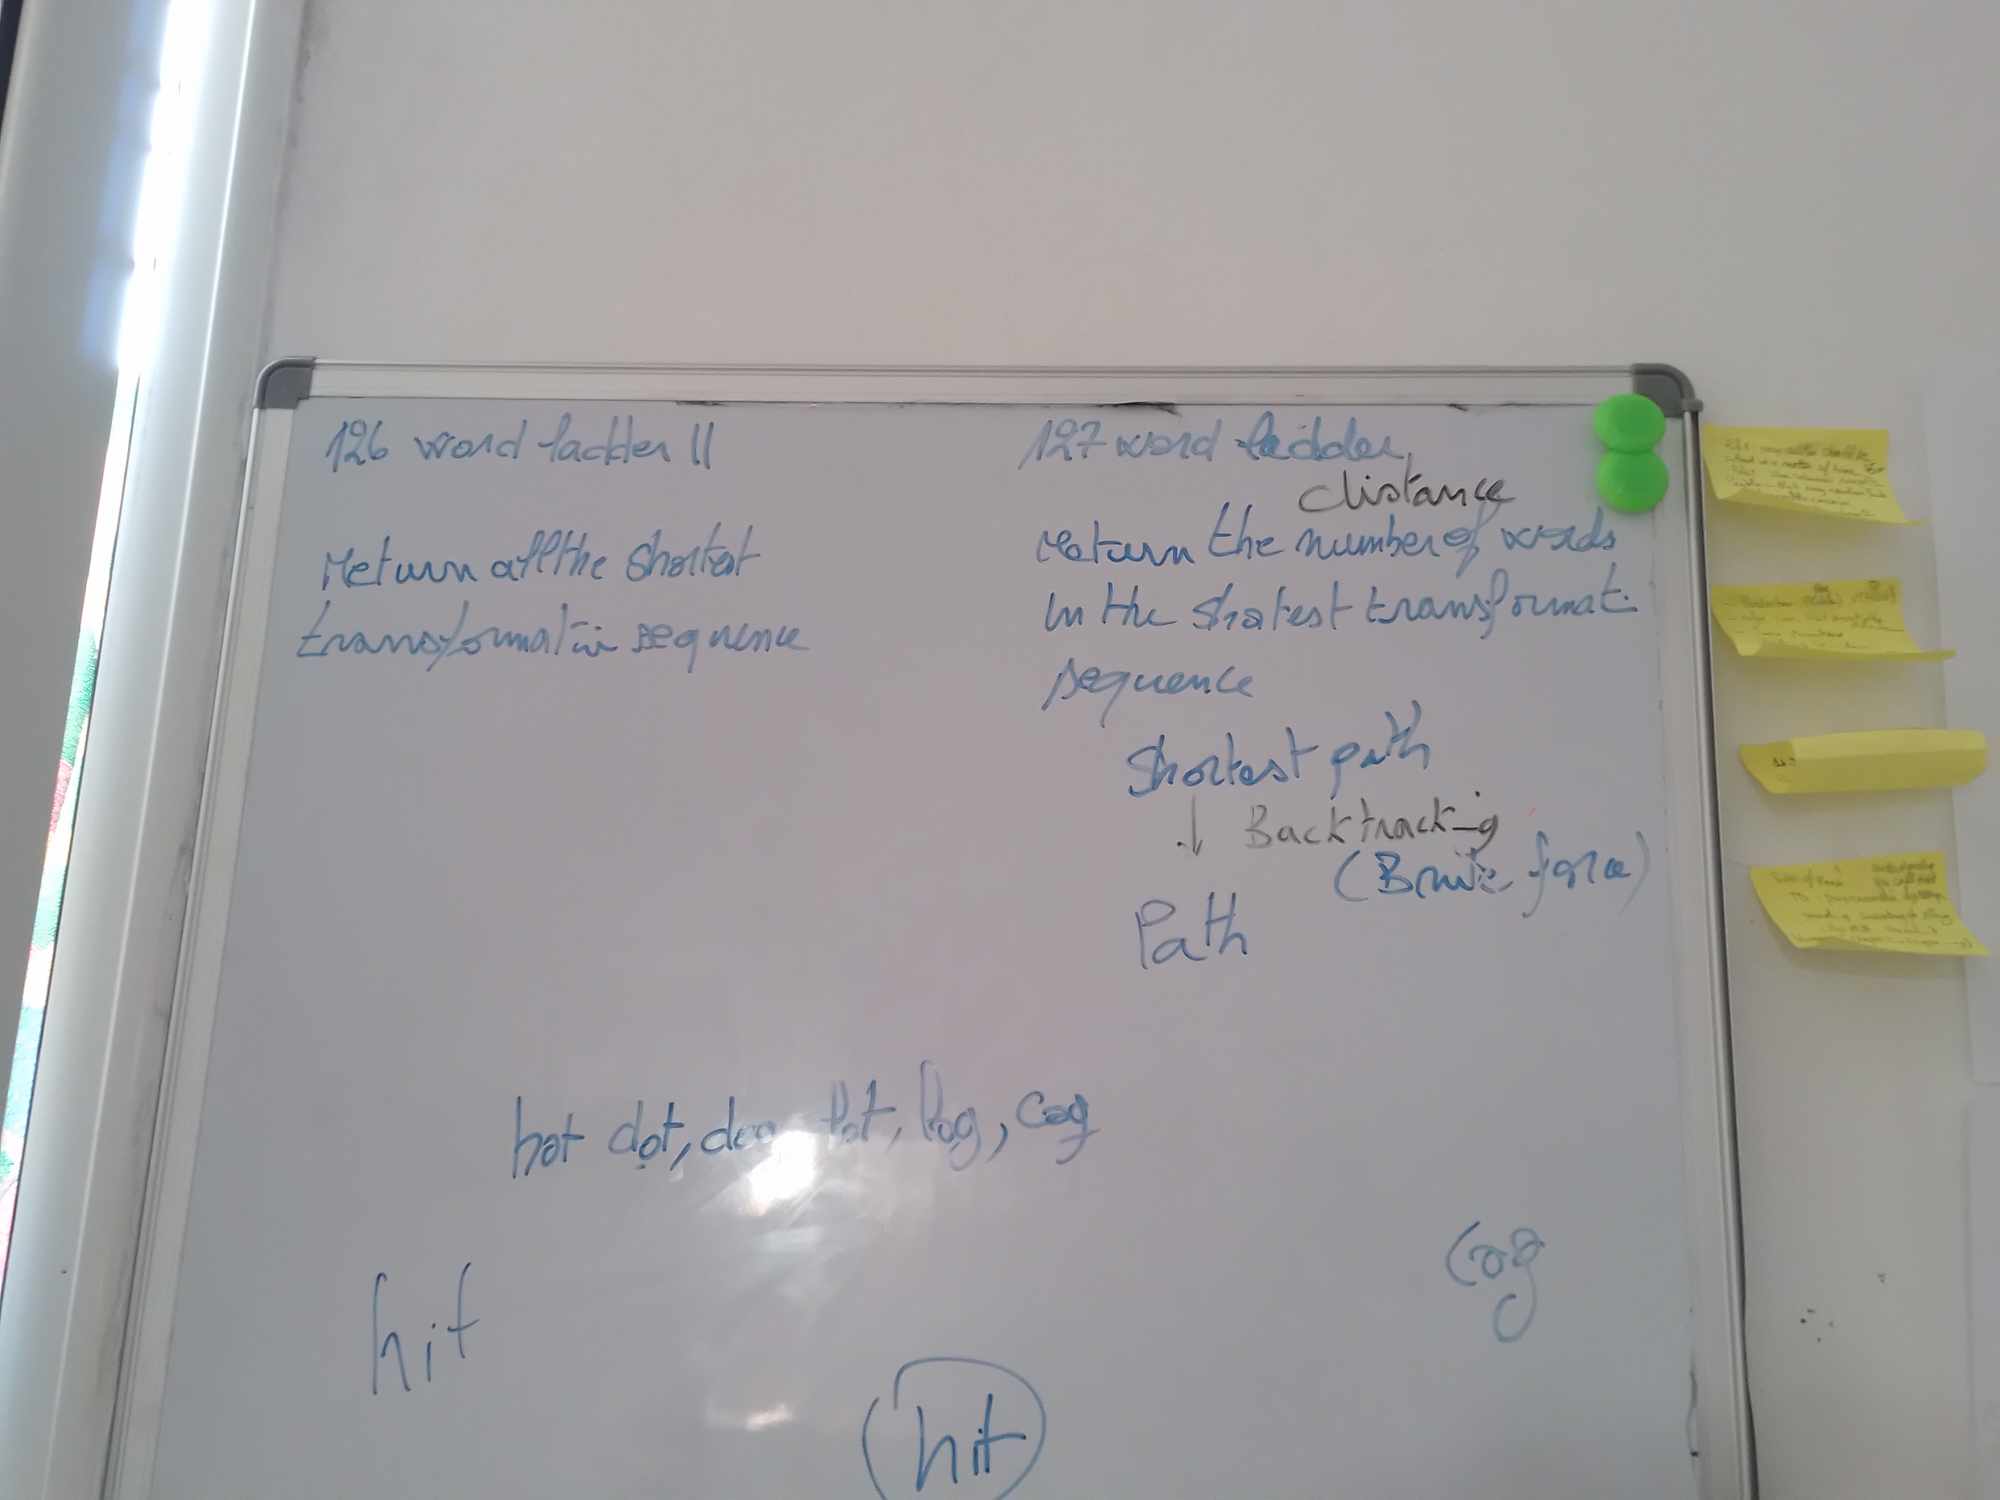 126 word ladder II
return all the shortest
transformation sequence
127 word ladder
distance
return the number of words
in the shortest transformat.
sequence
shortest path
↓ Backtracking
(Brute force)
Path
hot dot, dog lot, log, cog
hit
cog
hit